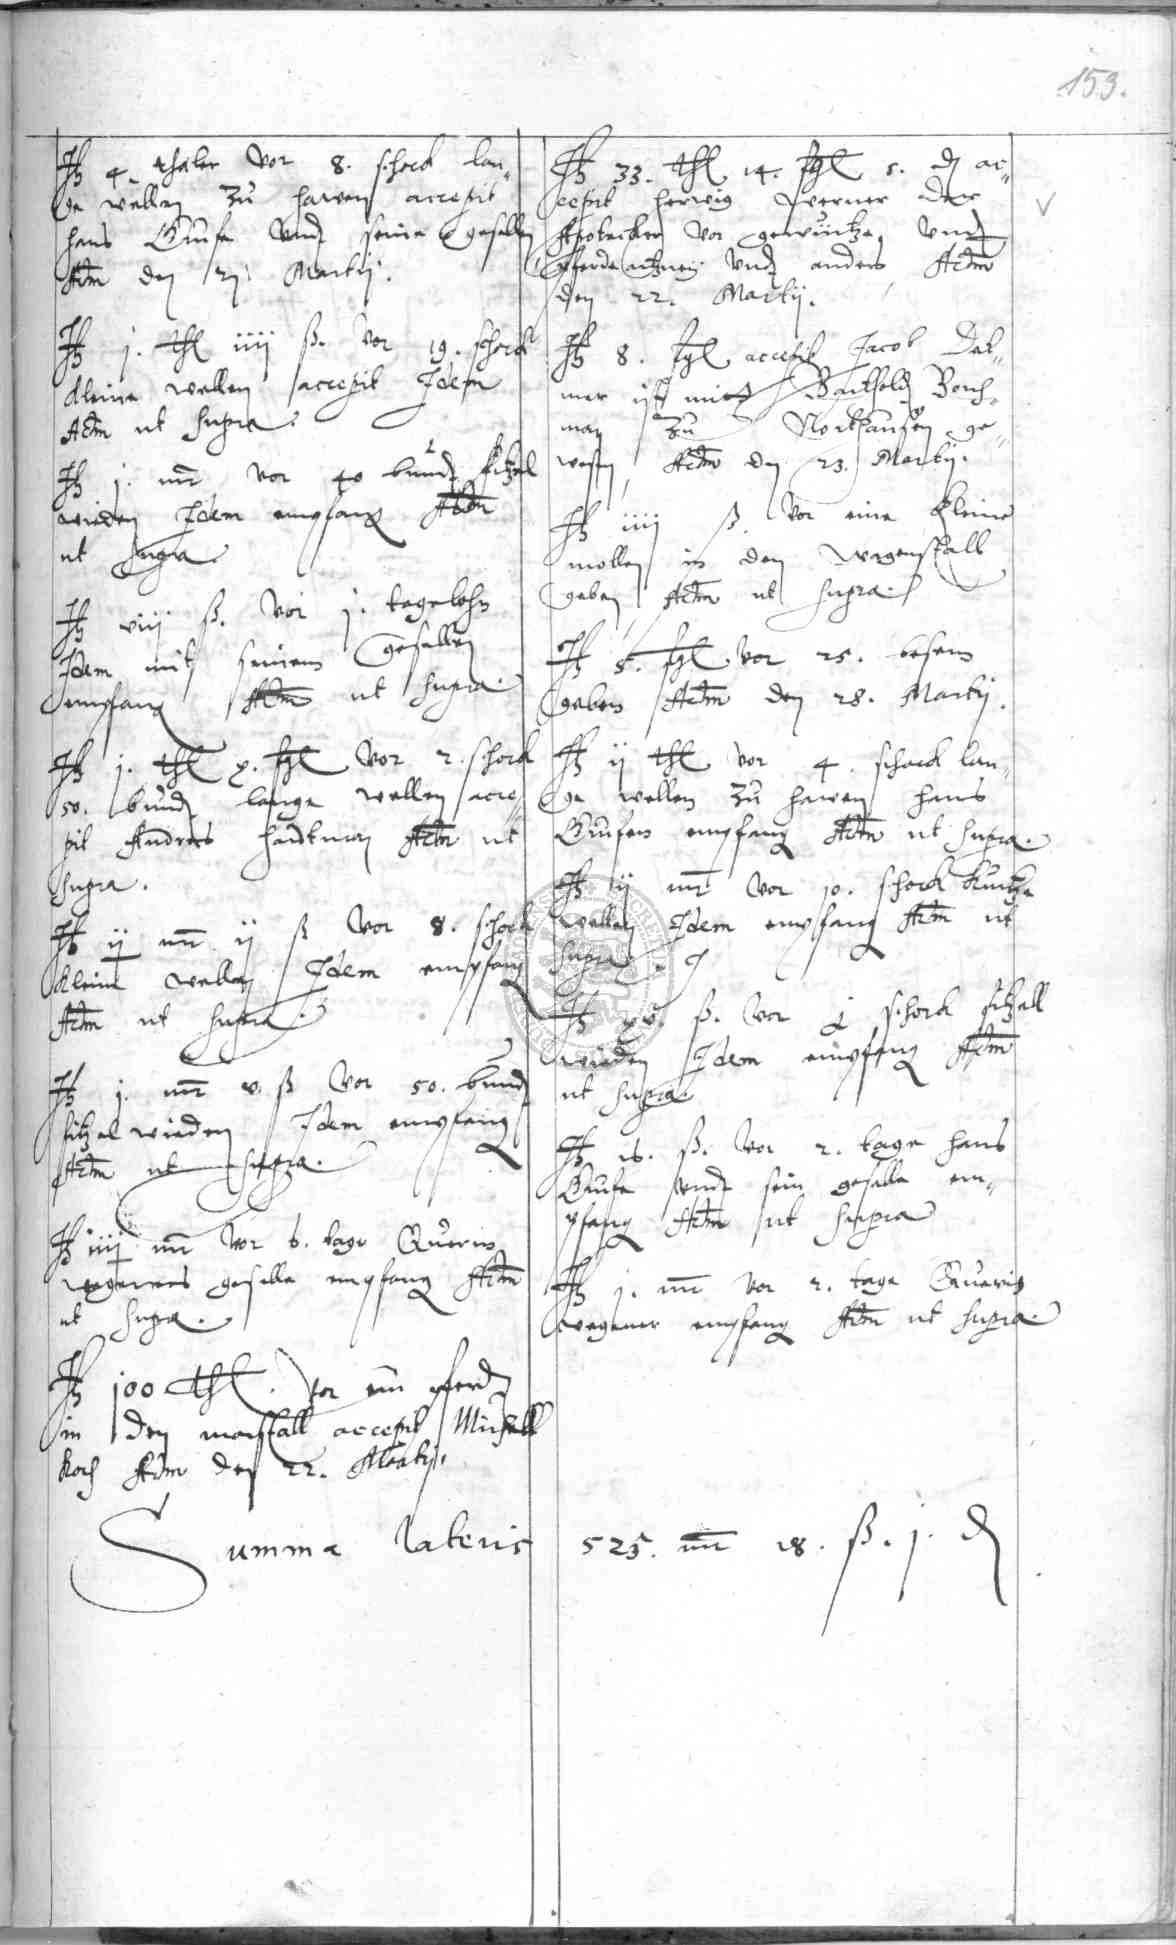 153.
It 4. thaler vor 8. schock lan„
ge wellen zu hawen accepit
hans Grufe vnd seine gesellen
Actm den 21 Martij.
It j. thl iiij ß. vor 19. schock
kleine wellen accepit Idem
Actm ut supra.
It j. mr vor 40 bund fitzel
wieden Idem empfang Actm
ut supra
It viij ß. vor j. tagelohn
Idem mit seinem gesellen
empfang Actm ut supra.
It j. thl x. fgl vor 2. schock
50. bund lange wellen acce„
pit Andres hardtman Actm ut
supra.
It ij mr ij ß vor 8. schock
kleine wellen Idem empfang
Actm ut supra.
It j. mr v. ß vor 50. bund
fitzel wieden Idem empfang
Actm ut supra.
It iiij mr vor 6. tage Querin
wegeners geselle empfang Actm
ut supra.
It 100 thl. vor ein pferd
in den marstall accepit Michell
Koch Actm den 22. Martij.
It 33. thl. 14. fgl 5. d ac„
cepit herwig Werner der
Apotecker vor gewurtze vnd
pferde artzney vnd anders Actm
den 22. Martij.
It 8. fgl accepit Jacob Det„
mer ist mit Barthold Borch„
man zu Northausen ge„
wesen Actm den 23. Martij.
It iiij ß. vor eine kleine
mollen in den wagenstall
geben Actm ut supra.
It 5. fgl vor 25. besem
geben Actm den 28. Martij.
It ij thl vor 4. schock lan„
ge wellen zu hawen hans
Grufen empfang Actm ut supra.
It ij mr vor 10. schock kurtze
wellen Idem empfang Actm ut
supra.
It xv. ß. vor j schock fitzall
wieden Idem empfang Actm
ut supra.
It 16. ß. vor 2. tage hans
Grufe vnd sein geselle em„
pfang Actm ut supra
It j. mr vor 2. tage Querin
wegener empfang Actm ut supra.
Summa lateris 525. mr 18. ß. j. d